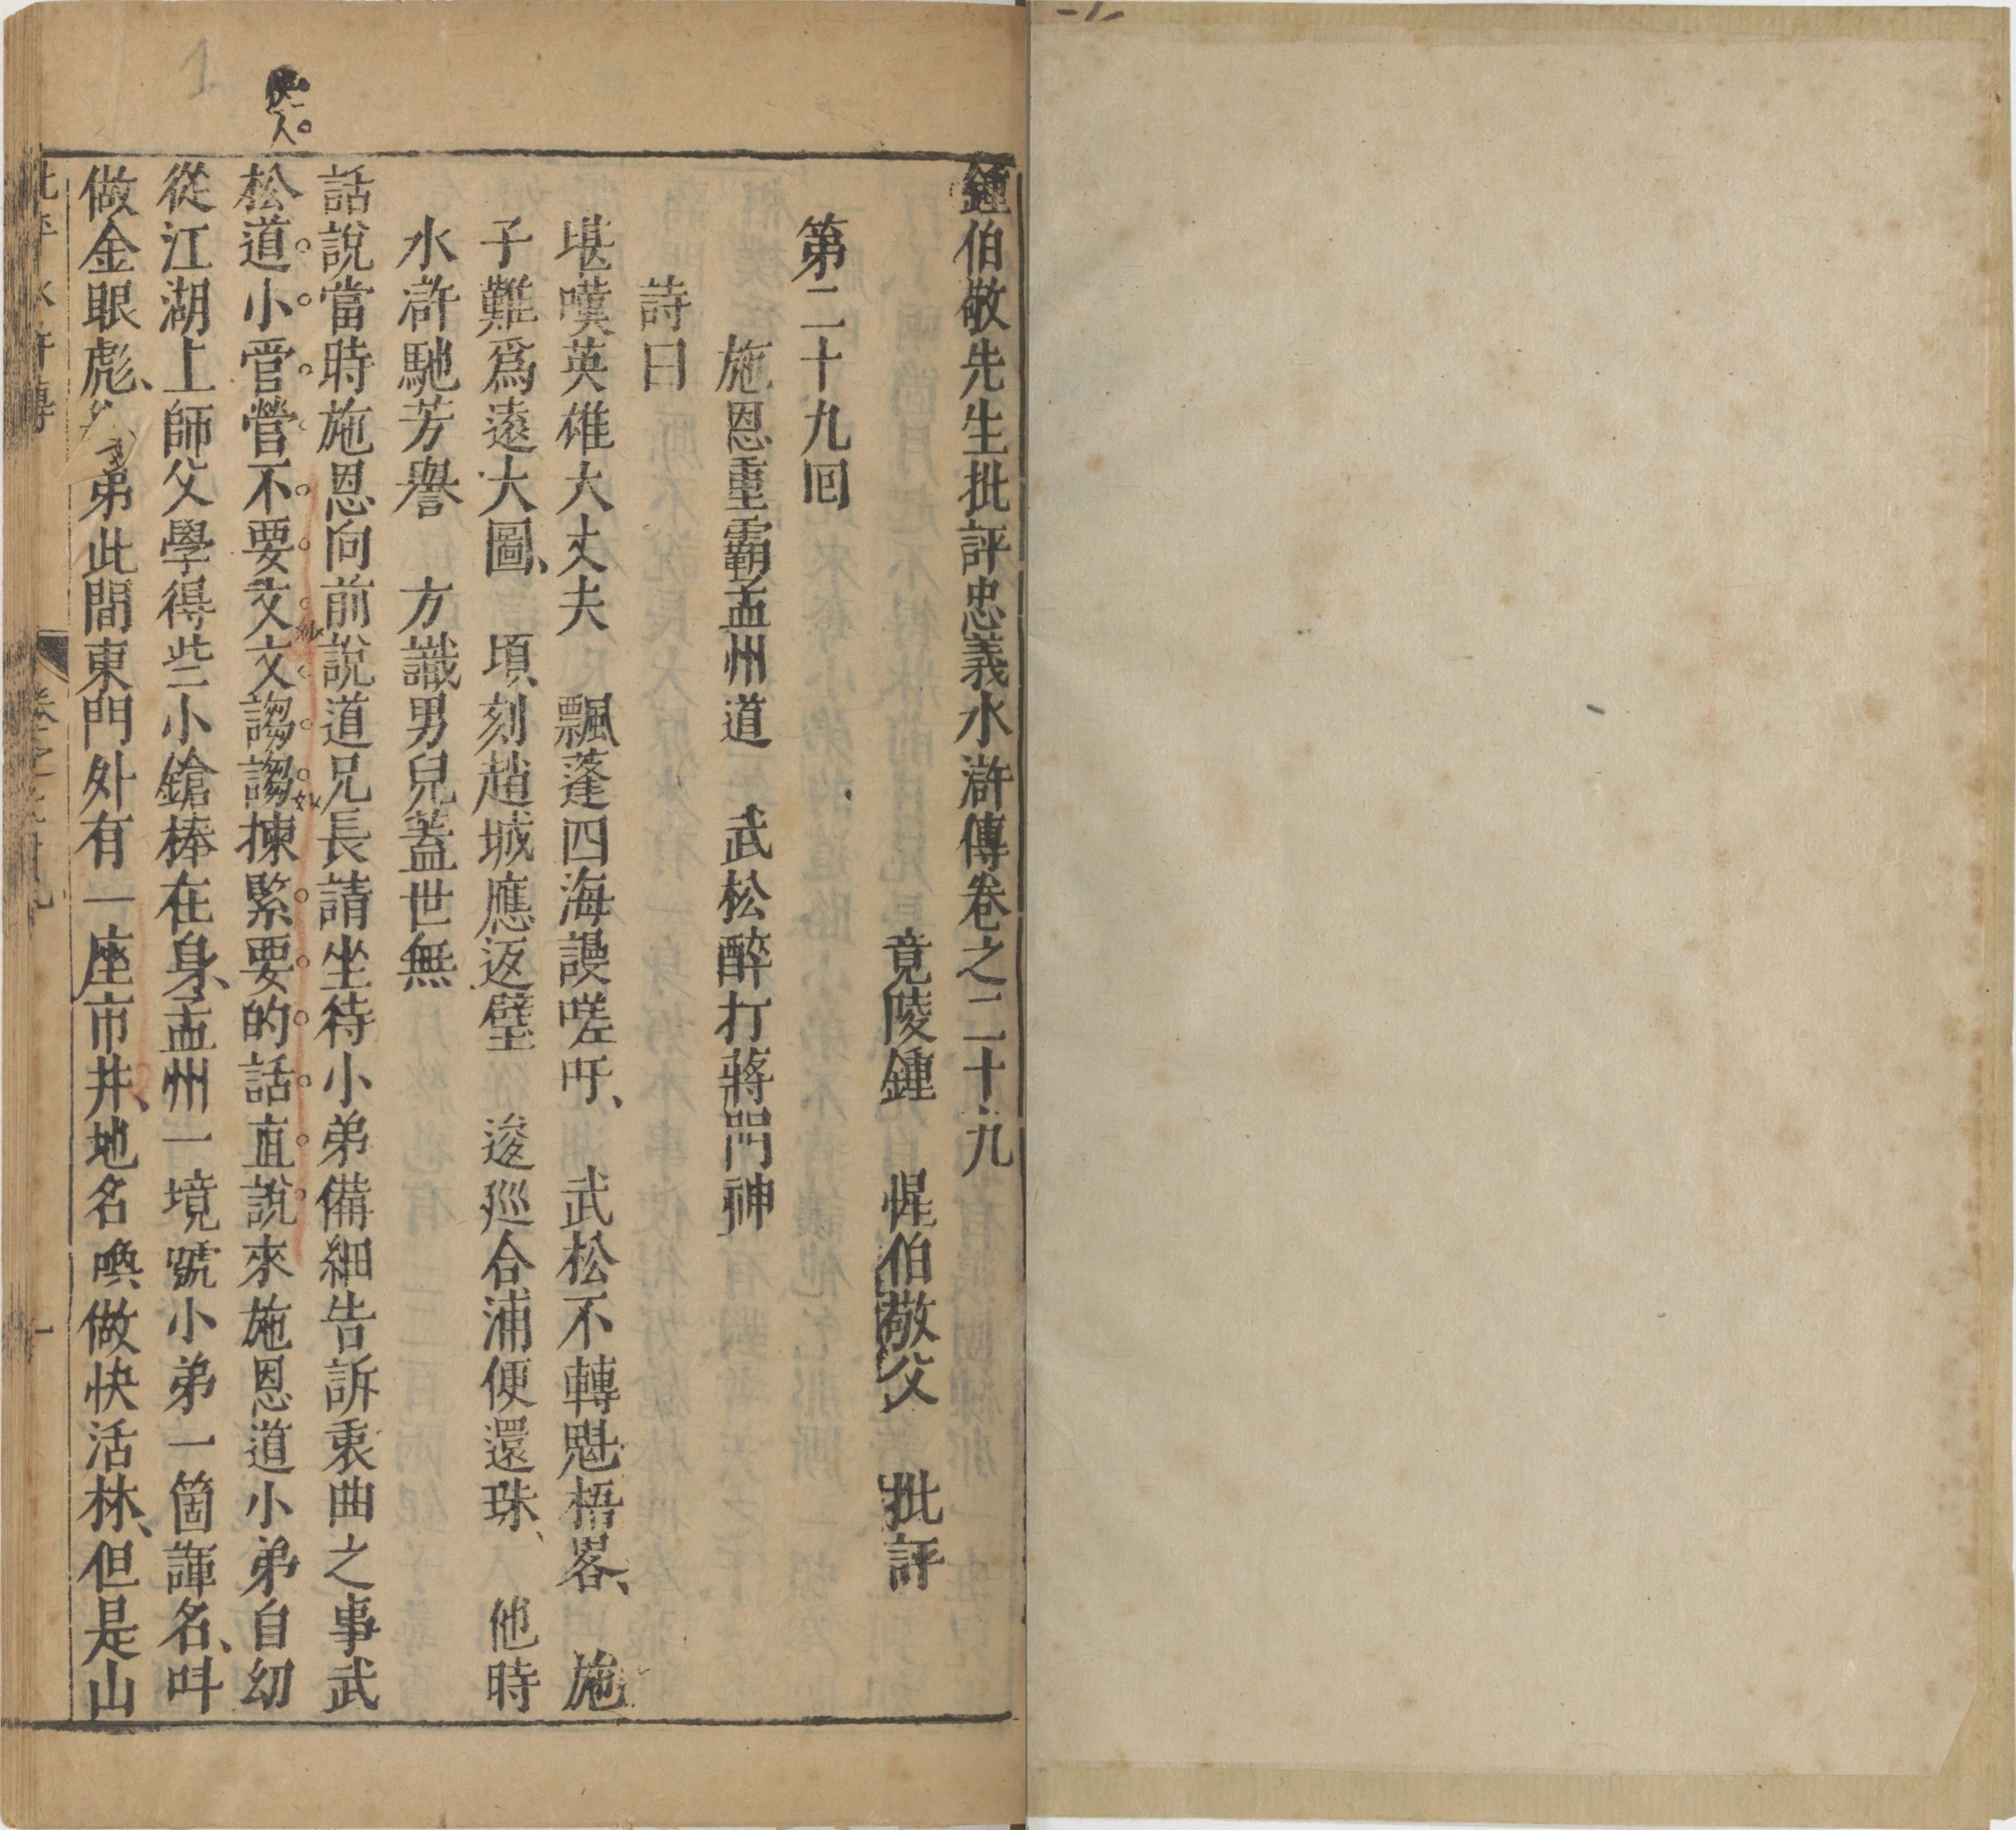 鍾伯敬先生批評忠義水滸傳卷之二十九
竟陵鍾 惺伯敬父 批評
第二十九回
施恩重霸孟州道 武松醉打蔣門神
詩曰
堪嘆英雄大丈夫 飄蓬四海謾嗟吁、 武松不轉魁梧畧、 施
子難爲遠大圖、 頃刻趙城應返璧 逡巡合浦便還珠、 他時
水滸馳芳譽 方識男兒蓋世無
話說當時施恩向前說道兄長請坐待小弟備細告訴衷曲之事武
松道小管營不要文文謅謅揀緊要的話直說來施恩道小弟自幼
從江湖上師父學得些小鎗棒在身、孟州一境號小弟一箇諢名、呌
做金眼彪、弟此間東門外有一座市井、地名喚做快活林、但是山
1